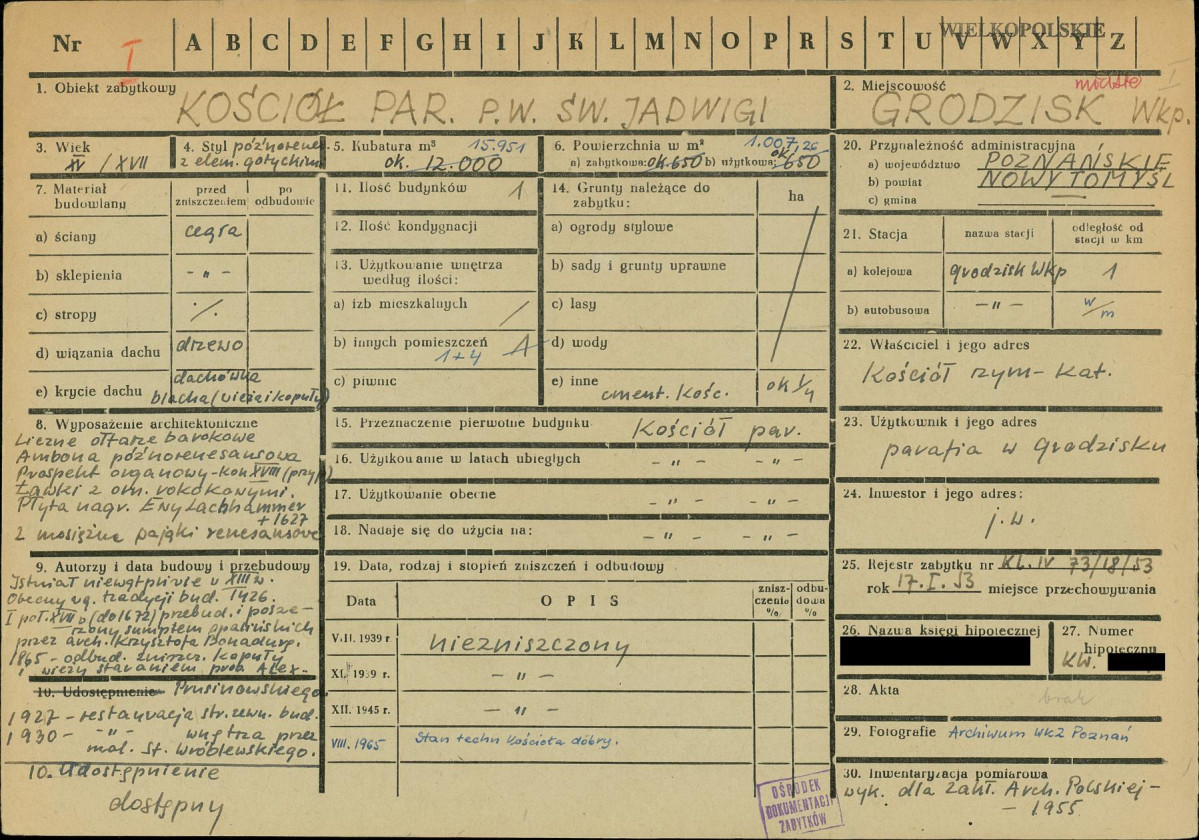 WIELKOPOLSKIE
Nr I A B C D E F G H I J K L M N O P R S T U V W X Y Z
1. Obiekt zabytkowy
KOŚCIÓŁ PAR. P.W. ŚW. JADWIGI
2. Miejscowość
GRODZISK Wkp.
3. Wiek
XV / XVII
4. Styl późnorenes.
z elem. gotyckimi
5. Kubatura m³ 15.951
ok. 12.000
6. Powierzchnia w m² 1.007,26
a) zabytkowa: ok. 650 b) użytkowa: ok 650
7. Materiał budowlany
przed zniszczeniem
po odbudowie
a) ściany cegła
b) sklepienia - " -
c) stropy ·/·
d) wiązania dachu drzewo
e) krycie dachu dachówka
blacha (wieża i kopuły)
8. Wyposażenie architektoniczne
Liczne ołtarze barokowe
Ambona późnorenesansowa
Prospekt organowy - kon XVIII (przyp)
Ławki z orn. rokokowymi.
Płyta nagr. Ewy Lachhammer
+ 1627
2 mosiężne pająki renesansowe
9. Autorzy i data budowy i przebudowy
Istniał niewątpliwie w XIII w.
Obecny wg. tradycji bud. 1426.
I poł. XVII w (do 1672) przebud. i posze-
rzony sumptem Opalińskich
przez arch. Krzysztofa Bonadurę.
1865 - odbud. zniszcz. kopuły
i wieży staraniem prob. Alex-
10. Udostępnienie Prusinowskiego
1927 - restauracja str. zewn. bud.
1930 - - " - wnętrza przez
mal. St. Wróblewskiego.
10. Udostępnienie
dostępny
11. Ilość budynków 1
12. Ilość kondygnacji
13. Użytkowanie wnętrza według ilości:
a) izb mieszkalnych /
b) innych pomieszczeń
1+4
c) piwnic
14. Grunty należące do zabytku: ha
a) ogrody stylowe
b) sady i grunty uprawne
c) lasy
d) wody
e) inne
cment. kośc. ok 1/4
15. Przeznaczenie pierwotne budynku Kościół par.
16. Użytkowanie w latach ubiegłych - " - - " -
17. Użytkowanie obecne - " - - " -
18. Nadaje się do użycia na: - " - - " -
19. Data, rodzaj i stopień zniszczeń i odbudowy
Data OPIS zniszczenie % odbudowa %
V.II. 1939 r. niezniszczony
XI. 1939 r. - " -
XII. 1945 r. - " -
VIII. 1965 Stan techn kościoła dobry.
OŚRODEK
DOKUMENTACJI
ZABYTKÓW
20. Przynależność administracyjna
a) województwo POZNAŃSKIE
b) powiat NOWY TOMYŚL
c) gmina —
21. Stacja nazwa stacji odległość od stacji w km
a) kolejowa Grodzisk Wkp 1
b) autobusowa - " - w/m
22. Właściciel i jego adres
Kościół rzym-kat.
23. Użytkownik i jego adres
parafia w Grodzisku
24. Inwestor i jego adres:
j.w.
25. Rejestr zabytku nr KL. IV 73/18/53
rok 17. I. 53 miejsce przechowywania
26. Nazwa księgi hipotecznej
27. Numer hipoteczny
KW.
28. Akta brak
29. Fotografie Archiwum WKZ Poznań
30. Inwentaryzacja pomiarowa
wyk. dla Zakł. Arch. Polskiej -
- 1955